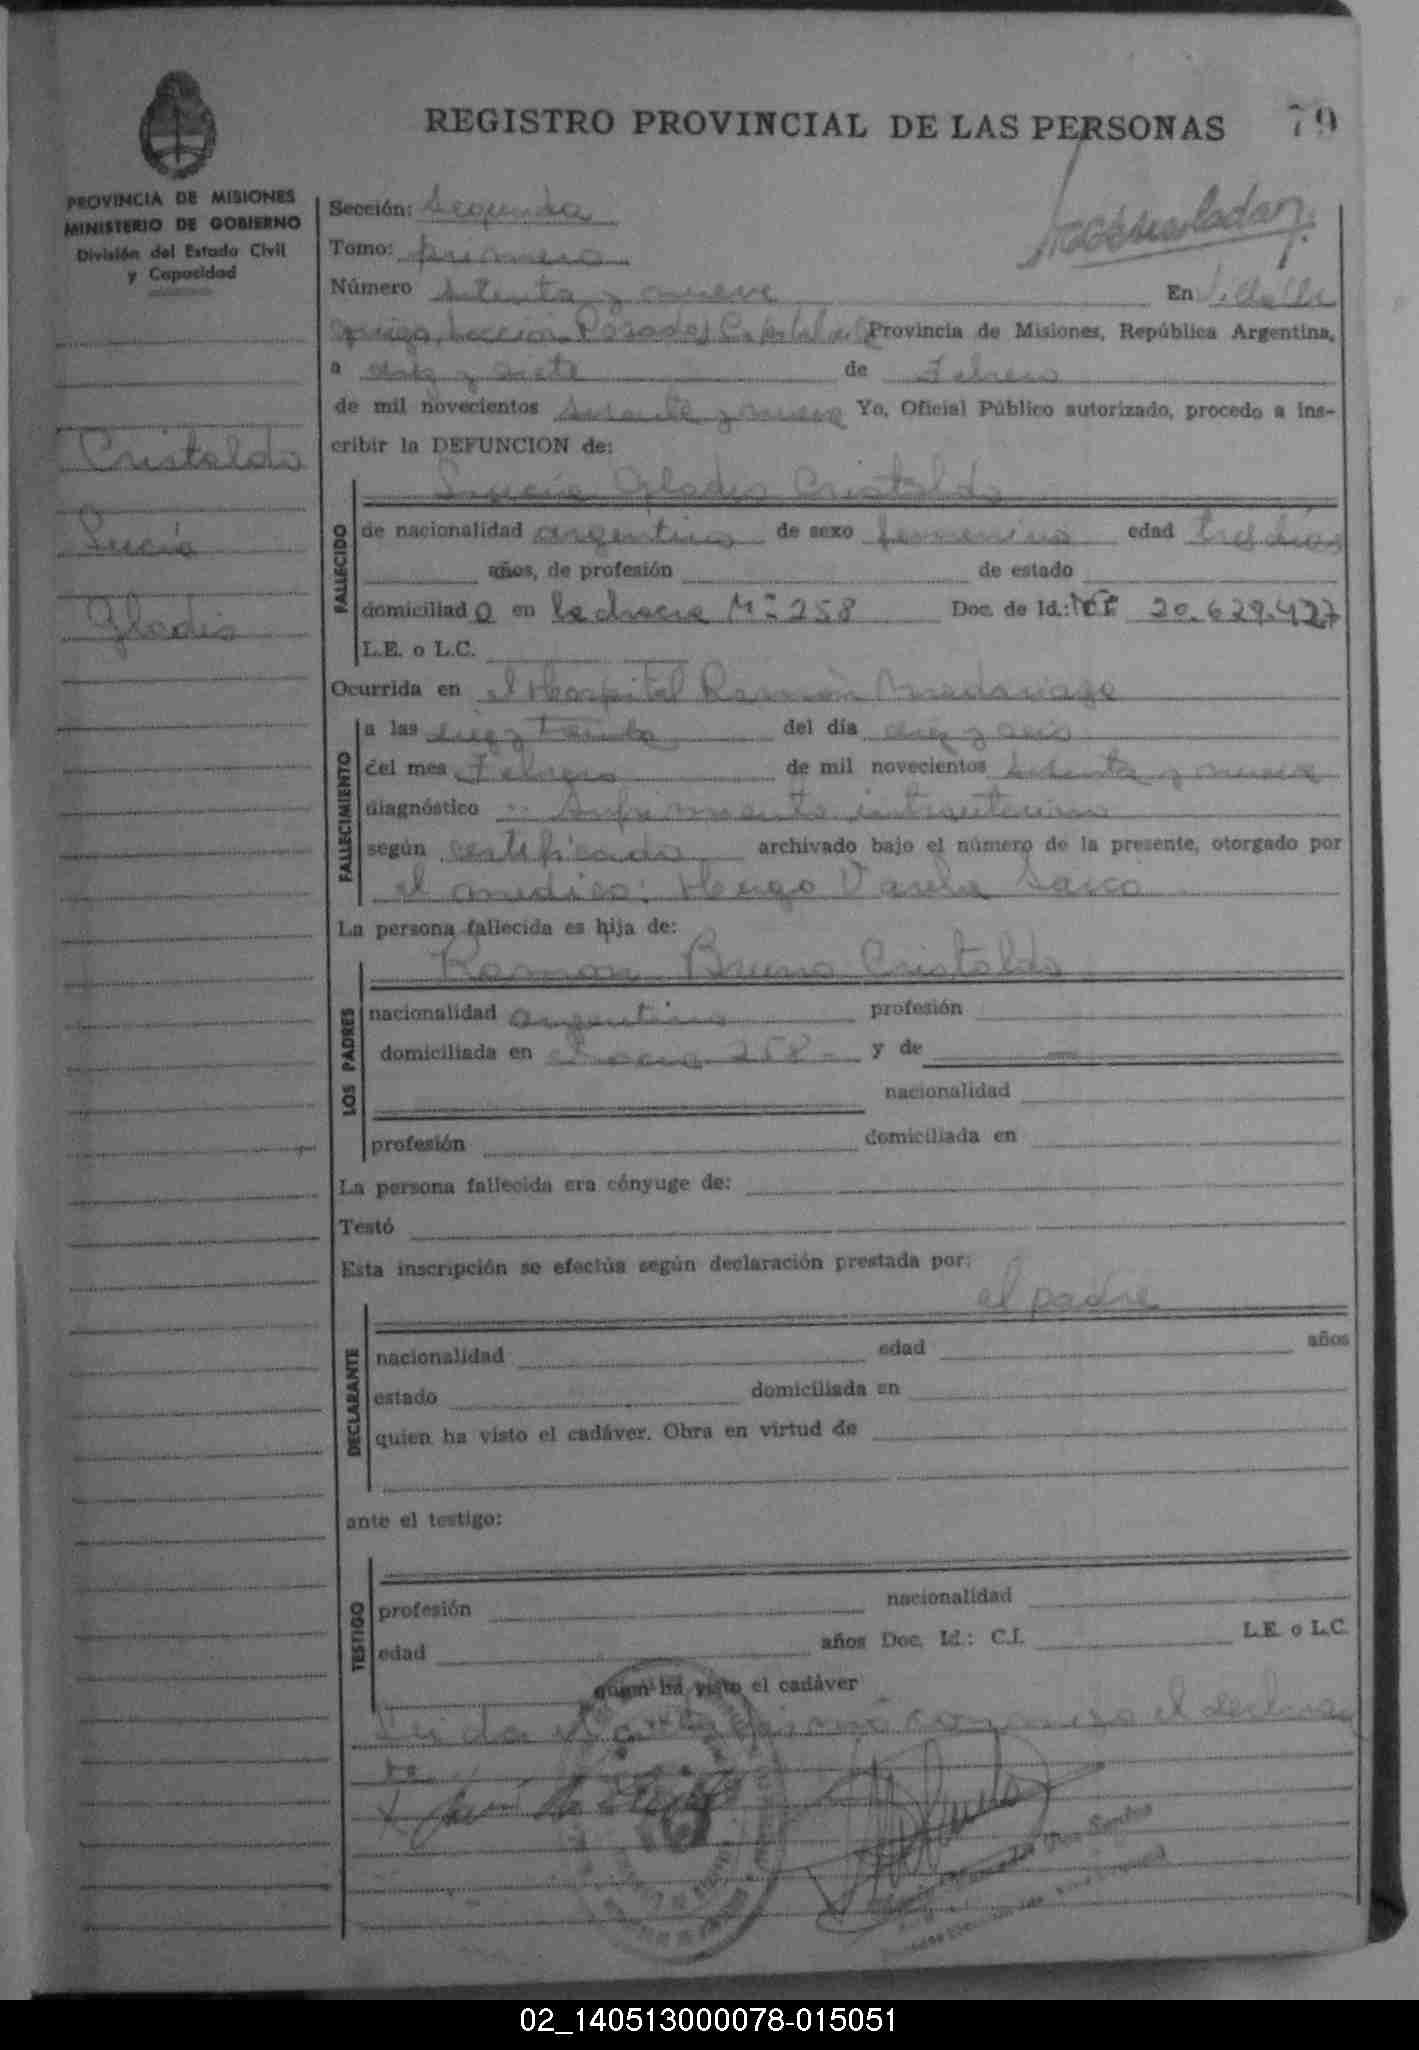 REGISTRO PROVINCIAL DE LAS PERSONAS 79
PROVINCIA DE MISIONES
MINISTERIO DE GOBIERNO
División del Estado Civil
y Capacidad
Cristaldo
Lucía
Gladis
Sección: Segunda
Tomo: primero
Número setenta y nueve En Villa
Posadas Capital de Provincia de Misiones, República Argentina,
a diez y siete de Febrero
de mil novecientos setenta y nueve Yo, Oficial Público autorizado, procedo a ins-
cribir la DEFUNCION de:
Lucía Gladis Cristaldo
FALLECIDO
de nacionalidad argentina de sexo femenino edad tres días
años, de profesión de estado
domiciliad a en la chacra Nº 258 Doc. de Id.: 20.629.427
L.E. o L.C.
Ocurrida en el Hospital Ramón Madariaga
FALLECIMIENTO
a las diez y treinta del día diez y seis
del mes Febrero de mil novecientos setenta y nueve
diagnóstico Sufrimiento intrauterino
según certificado archivado bajo el número de la presente, otorgado por
el medico: Hugo Varela Sasco
La persona fallecida es hija de:
Ramon Bruno Cristaldo
LOS PADRES
nacionalidad argentino profesión
domiciliada en chacra 258 - y de
nacionalidad
profesión domiciliada en
La persona fallecida era cónyuge de:
Testó
Esta inscripción se efectúa según declaración prestada por:
el padre
DECLARANTE
nacionalidad edad años
estado domiciliada en
quien ha visto el cadáver. Obra en virtud de
ante el testigo:
TESTIGO
profesión nacionalidad
edad años Doc. Id.: C.I. L.E. o L.C.
quien ha visto el cadáver
Leida el acta la firmó conmigo el declaran
te
02_140513000078-015051